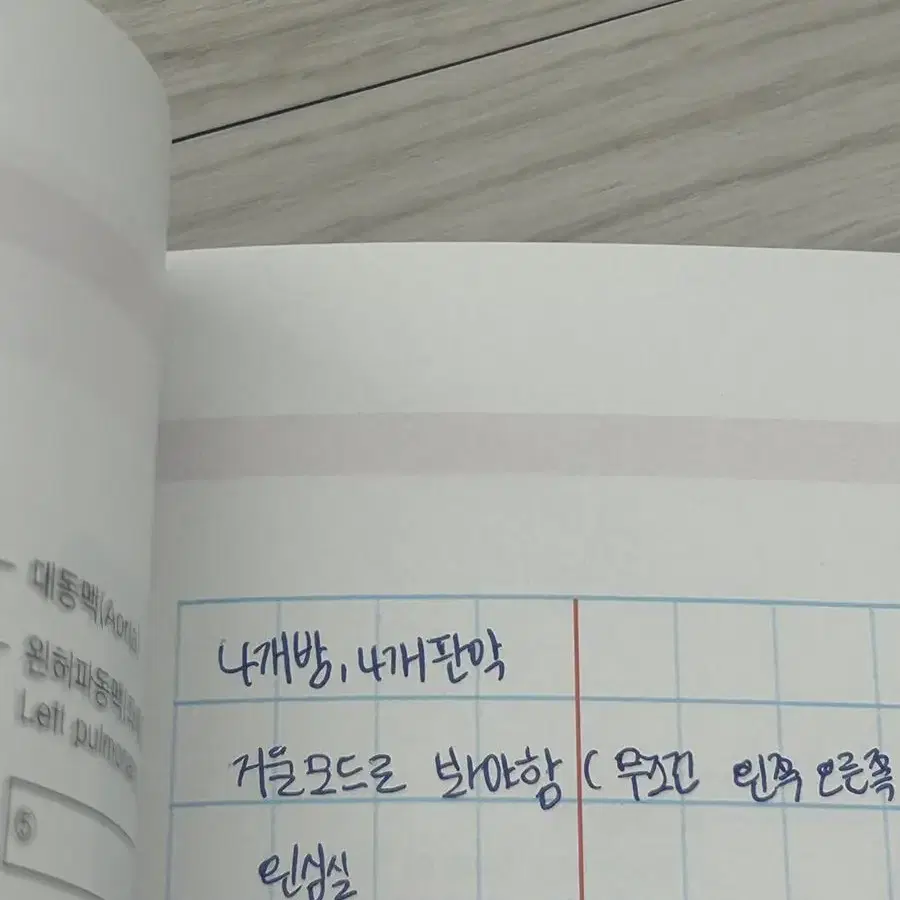 대동맥(Aorta)
왼허파동맥(
Left pulmona
⑤
4개방, 4개판막
거울모드로 봐야함 ( 무조건 왼쪽 오른쪽
왼심실